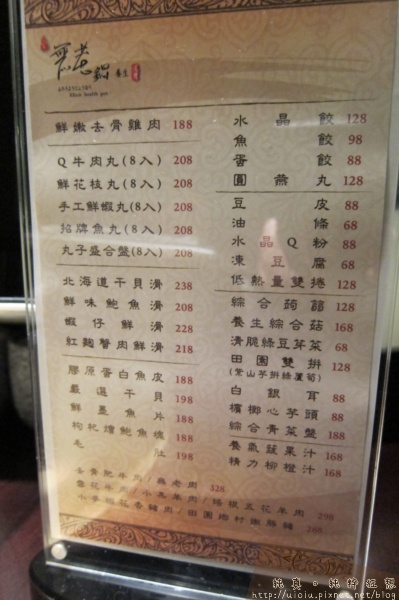 無老鍋
鮮嫩去骨雞肉 188
Q牛肉丸(8入) 208
鮮花枝丸(8入) 208
手工鮮蝦丸(8入) 208
招牌魚丸(8入) 208
丸子盛合盤(8入) 208
北海道干貝滑 238
鮮味鮑魚滑 208
蝦仔鮮滑 228
紅麴蟹肉鮮滑 218
膠原蛋白魚皮 188
嚴選干貝 198
鮮墨魚片 188
枸杞燴鮑魚塊 188
毛肚 198
水晶餃 128
魚餃 98
蛋餃 88
圓燕丸 128
豆皮 88
油條 68
水晶Q粉 88
凍豆腐 68
低熱量雙捲 128
綜合菇餡 128
養生綜合菇 168
清脆綠豆芽菜 68
田園雙拼 128
(紫山芋拼綠蘆筍)
白銀耳 88
檳榔心芋頭 88
綜合青菜盤 188
養氣蔬果汁 168
精力柳橙汁 168
328
298
268
純真。純粹狂想
http://uiuiu.pixnet.net/blog